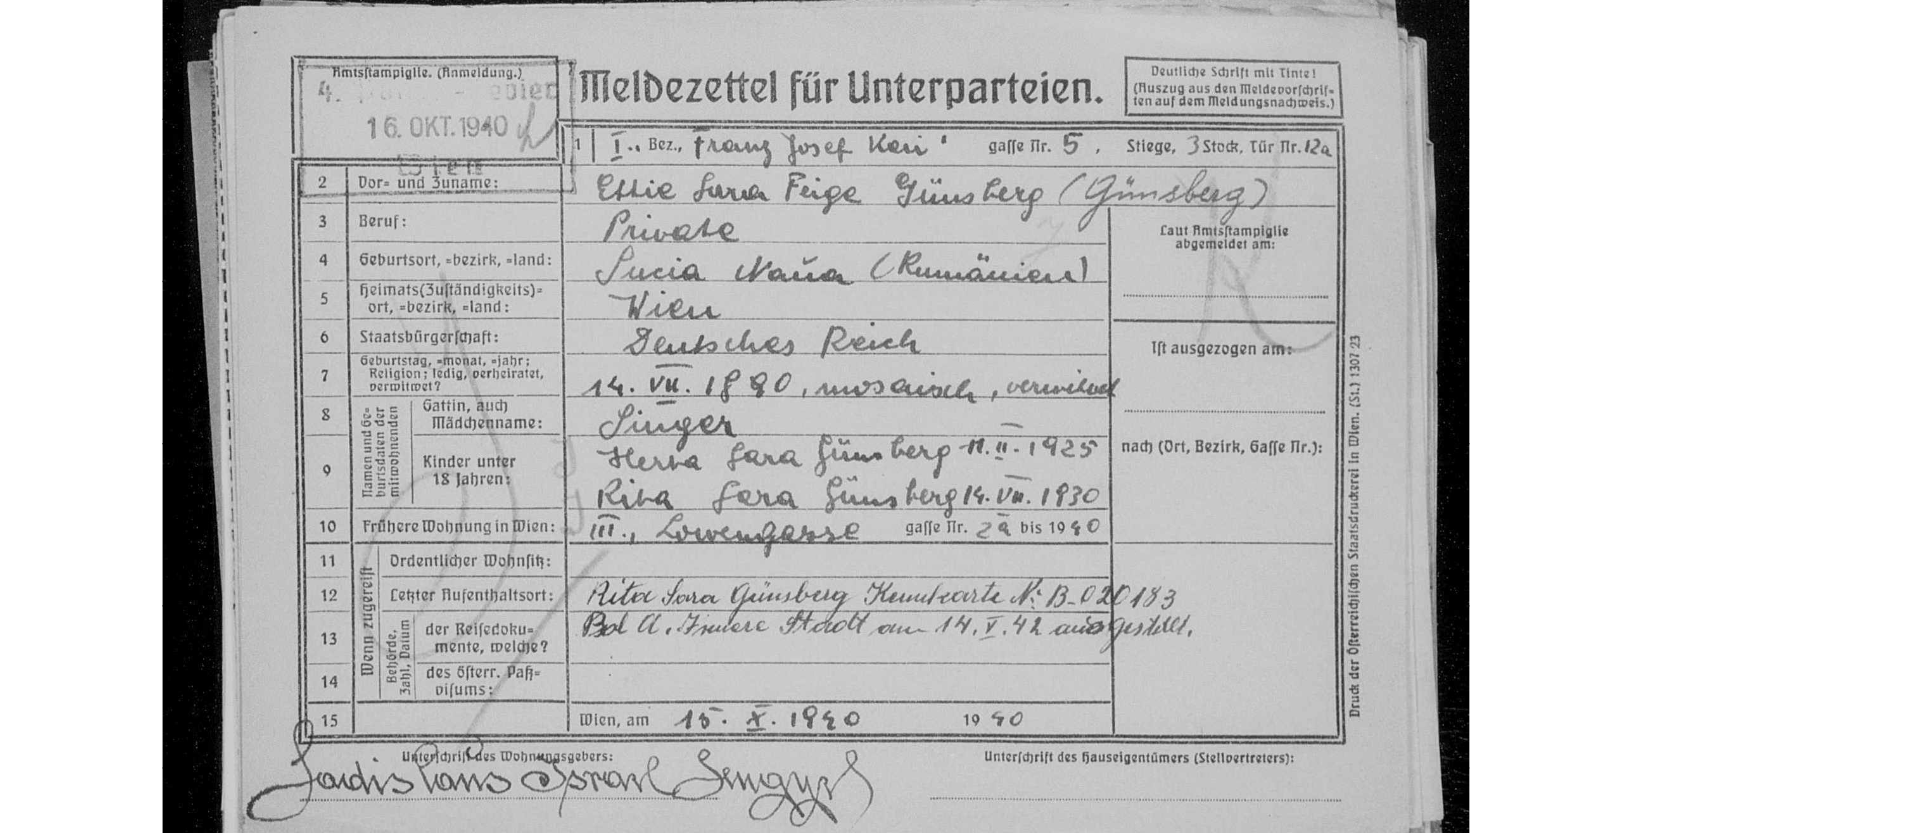 Amtsstampiglie. (Anmeldung.)
4.
16. OKT. 1940
Wien
Meldezettel für Unterparteien.
Deutliche Schrift mit Tinte!
(Auszug aus den Meldevorschrif=
ten auf dem Meldungsnachweis.)
1 I., Bez., Franz Josef Kai gasse Nr. 5, Stiege, 3 Stock, Tür Nr. 12a
2 Vor= und Zuname: Ettie Sara Feige Günsberg (Günsberg)
3 Beruf: Private
4 Geburtsort, =bezirk, =land: Sucia (Rumänien)
5 Heimats(Zuständigkeits)=
ort, =bezirk, =land: Wien
6 Staatsbürgerschaft: Deutsches Reich
7 Geburtstag, =monat, =jahr;
Religion; ledig, verheiratet,
verwitwet? 14. VII. 1890, mosaisch, verwitwet
Namen und Ge=
burtsdaten der
mitwohnenden
8 Gattin, auch
Mädchenname: Singer
9 Kinder unter
18 Jahren: Herta Sara Günsberg 11. II. 1925
Rita Sara Günsberg 14. VII. 1930
10 Frühere Wohnung in Wien: III., Lowengasse gasse Nr. 2a bis 1940
Wenn zugereist
11 Ordentlicher Wohnsitz:
12 Letzter Aufenthaltsort: Rita Sara Günsberg Kennkarte Nr. B-020183
Behörde,
Zahl, Datum
13 der Reisedoku=
mente, welche? Pol A. Innere Stadt am 14. V. 42 ausgestellt.
14 des österr. Paß=
visums:
15 Wien, am 15. X. 1940 1940
Laut Amtsstampiglie
abgemeldet am:
Ist ausgezogen am:
nach (Ort, Bezirk, Gasse Nr.):
Druck der Österreichischen Staatsdruckerei in Wien. (St.) 1307 23
Unterschrift des Wohnungsgebers:
Ladislaus Israel Lengyel
Unterschrift des Hauseigentümers (Stellvertreters):